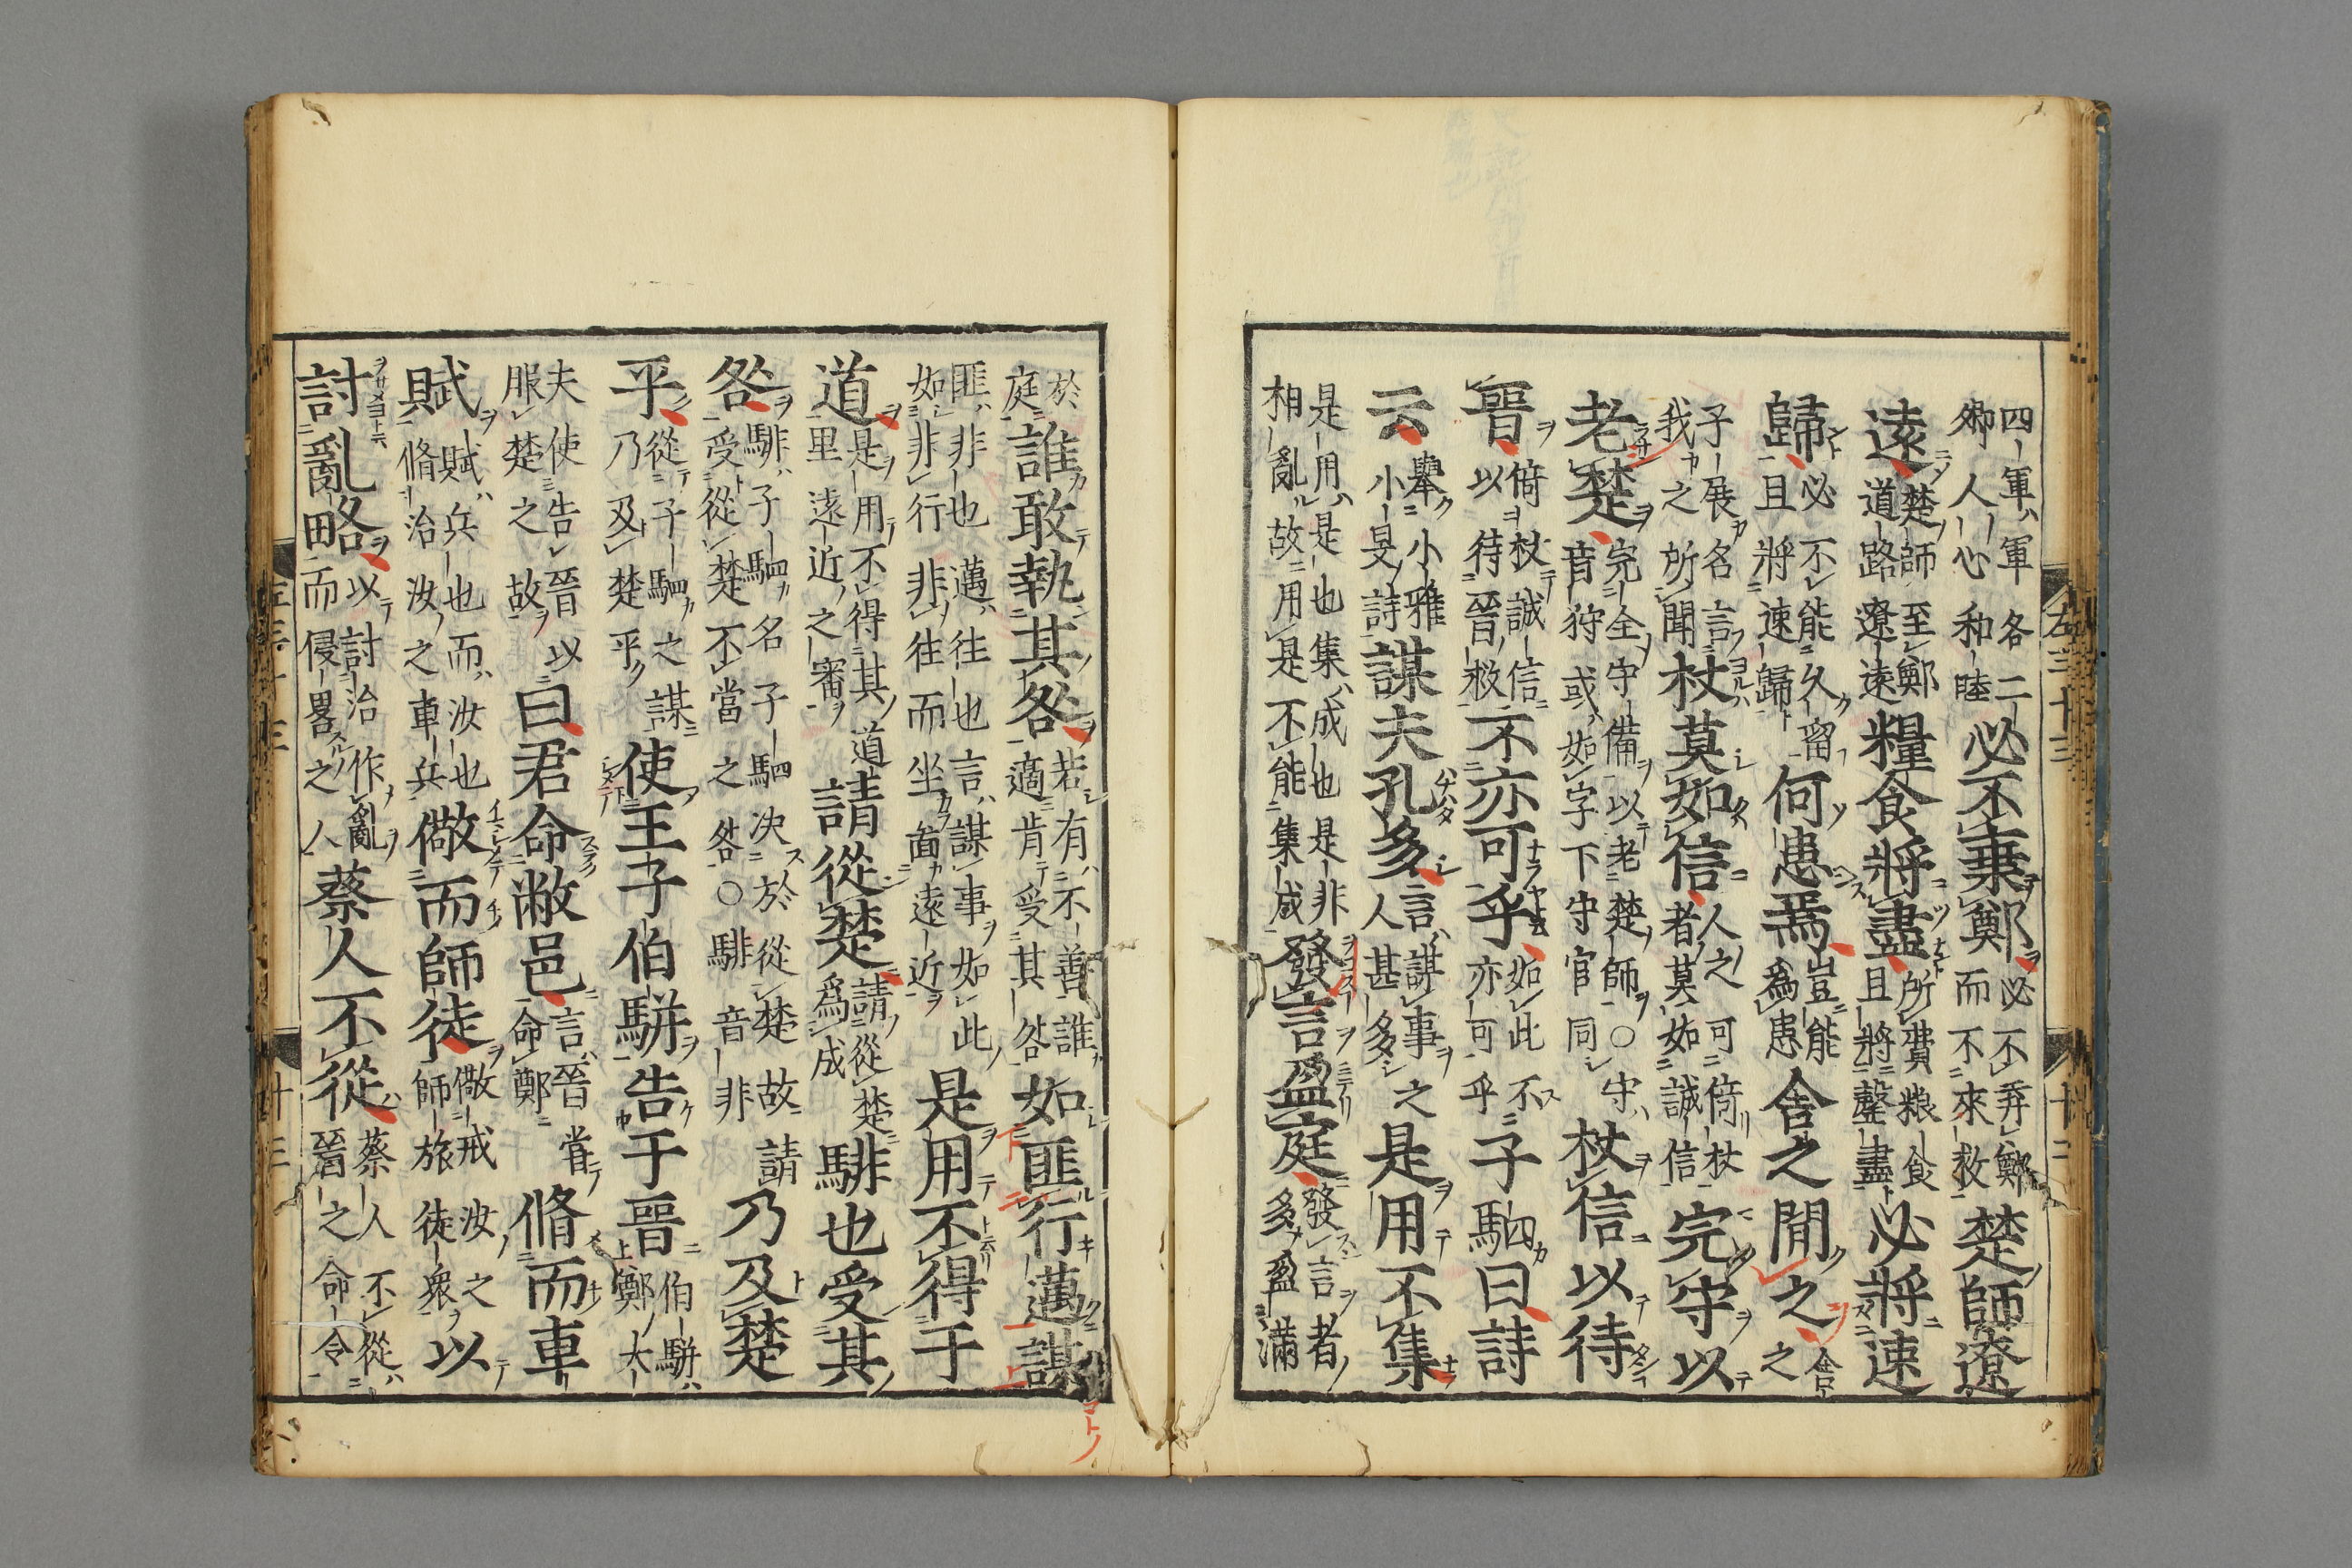 左三十三 十二
四軍軍各二卿人心和睦必不棄鄭必不弃鄭而不來救楚師遼
遠楚師至鄭道路遼遠糧食將盡所費粮食且將罄盡必將速
歸必不能久留且將速歸何患焉豈能為患舍之聞之舍之
子展名言我之所聞杖莫如信人之可倚杖者莫如誠信完守以
老楚完全守備以老楚師○守音狩或如字下守官同杖信以待
晉倚杖誠信以待晉救不亦可乎如此不亦可乎子駟曰詩
云舉小雅小旻詩謀夫孔多言謀事之人甚多是用不集
是用是也集成也是非相亂故用是不能集成發言盈庭發言者多盈滿
於庭誰敢執其咎若有不善誰適肯受其咎如匪行邁謀
匪非也邁往也言謀事如此如非行非往而坐啚遠近是用不得于
道是用不得其道里遠近之審請從楚請從楚爲成騑也受其
咎騑子駟名子駟決於從楚故請受從楚不當之咎○騑音非乃及楚
平從子駟之謀乃及楚平使王子伯駢告于晉伯駢鄭大
夫使告晉以服楚之故曰君命敝邑言晉嘗命鄭脩而車
賦賦兵也而汝也脩治汝之車兵儆而師徒儆戒汝之師旅徒衆以
討亂略以討治作亂而侵畧之人蔡人不從蔡人不從晉之命令
左三十三 十三